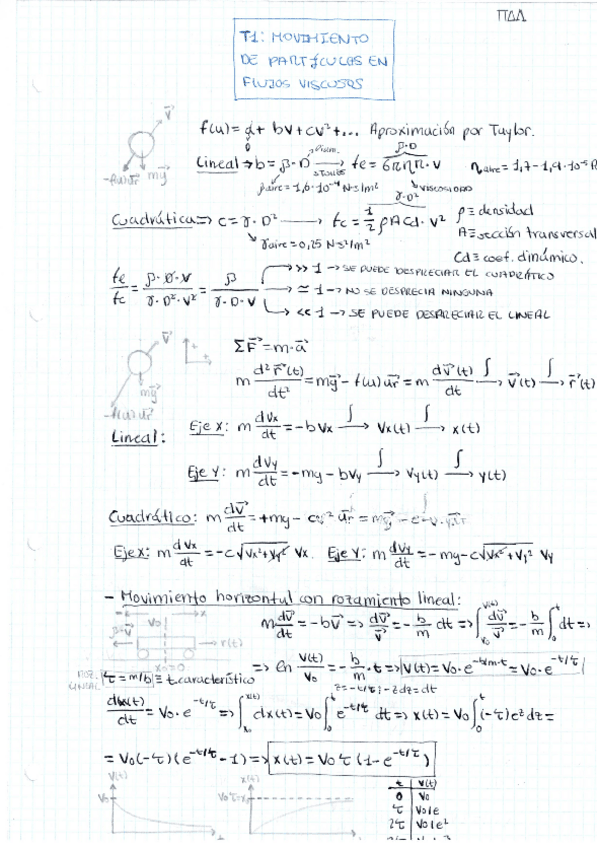 ΠΔΛ
T1: MOVIMIENTO
DE PARTÍCULAS EN
FLUJOS VISCOSOS
f(v) = a + bv + cv² + ... Aproximación por Taylor.
0
v⃗
mg⃗
Lineal → b = β·D → fe = 6πηR·v
β·D
STOKES
VISCOSIDAD
βaire = 1,6·10⁻⁴ N·s/m²
ηaire = 1,7-1,9·10⁻⁵
γ·D²
Cuadrática => c = γ·D² → fc = 1/2 ρACd·v²
ρ ≡ densidad
A ≡ sección transversal
Cd ≡ coef. dinámico.
γaire = 0,25 N·s²/m²
fe/fc = β·D·v/γ·D²·v² = β/γ·D·v
>> 1 → SE PUEDE DESPRECIAR EL CUADRÁTICO
≃ 1 → NO SE DESPRECIA NINGUNA
<< 1 → SE PUEDE DESPRECIAR EL LINEAL
v⃗
mg⃗
-f(v)u⃗r
ΣF⃗ = m·a⃗
m d²r⃗(t)/dt² = mg⃗ - f(v)u⃗r = m dv⃗(t)/dt ∫→ v⃗(t) ∫→ r⃗(t)
Lineal: Eje X: m dvx/dt = -bvx ∫→ vx(t) ∫→ x(t)
Eje Y: m dvy/dt = -mg - bvy ∫→ vy(t) ∫→ y(t)
Cuadrático: m dv⃗/dt = +mg - cv² u⃗r = mg⃗
Eje x: m dvx/dt = -c√(vx²+vy²) vx. Eje Y: m dvy/dt = -mg - c√(vx²+vy²) vy
- Movimiento horizontal con rozamiento lineal:
x
v0
r(t)
x0=0
m dv⃗/dt = -bv⃗ => dv⃗/v⃗ = -b/m dt => ∫ dv⃗/v⃗ = -b/m ∫₀ᵗ dt =>
=> ln v(t)/v0 = -b/m·t => v(t) = v0·e^(-b/m·t) = v0·e^(-t/τ)
ROZ. LINEAL
τ = m/b ≡ t. característico
z = -t/τ; -τdz = dt
dx(t)/dt = v0·e^(-t/τ) => ∫₀^x(t) dx(t) = v0 ∫₀ᵗ e^(-t/τ) dt => x(t) = v0 ∫₀ᵗ (-τ) e^z dz =
= v0(-τ)(e^(-t/τ) - 1) => x(t) = v0 τ (1 - e^(-t/τ))
v(t)
v0
t
x(t)
v0τ
t
t | v(t)
0 | v0
τ | v0/e
2τ | v0/e²